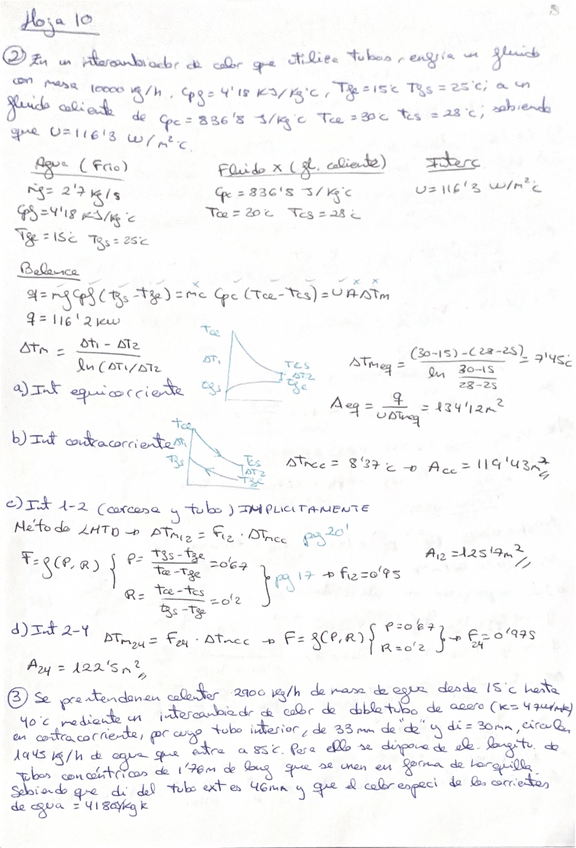 Hoja 10
② En un intercambiador de calor que utiliza tubos, enfria un fluido
con masa 10000 kg/h. Cpf = 4'18 KJ/kg°c, Tfe=15°c Tfs=25°c; a un
fluido caliente de Cpc = 836'8 J/kg°c Tce=30°c tcs = 28°c; sabiendo
que U=116'3 W/m²°c.
Agua (Frio)
ṁf= 2'7 kg/s
Cpf=4'18 KJ/kg°c
Tfe=15°c Tfs=25°c
Fluido X (fl. caliente)
Cpc = 836'8 J/kg°c
Tce = 30°c Tcs = 28°c
Interc
U=116'3 W/m²°c
Balance
q=mf Cpf (tfs-tfe)=mc Cpc (Tce-Tcs)=UAΔTm
q = 116'2 kw
ΔTm = (ΔT1 - ΔT2)/(ln(ΔT1/ΔT2)
a) Int equicorriente
Tce
ΔT1
tfs
Tcs
ΔT2
tfe
ΔTmeq = ((30-15)-(28-25))/(ln (30-15)/(28-25)) = 7'45°c
Aeq = q/(UΔTmeq) = 134'12m²
b) Int contracorriente
Tce
ΔT1
Tfs
Tcs
ΔT2
Tfe
ΔTmcc = 8'37°c → Acc = 119'43m²
c) Int 1-2 (carcasa y tubo) IMPLICITAMENTE
Método LMTD → ΔTm12 = F12 · ΔTmcc pg 20'
F=f(P,R) { P= (tfs-tfe)/(tce-tfe) =0'67
R= (tce-tcs)/(tfs-tfe) =0'2 } pg 17 → f12=0'95
A12=125'7m²
d) Int 2-4 ΔTm24 = F24 · ΔTmcc → F=f(P,R) { P=0'67 R=0'2 } → F24=0'975
A24 = 122'5m²
③ Se pretenden calentar 2900 kg/h de masa de agua desde 15°c hasta
40°c, mediante un intercambiador de calor de doble tubo de acero (K=47w/mk)
en contracorriente, por cuyo tubo interior, de 33mm de "de" y di=30mm, circulan
1945 kg/h de agua que entra a 85°c. Para ello se dispone de ele. longitu. de
tubos concéntricos de 1'76m de long que se unen en forma de horquilla.
Sabiendo que di del tubo ext es 46mm y que el calor especi de las corrientes
de agua = 4180J/kg k